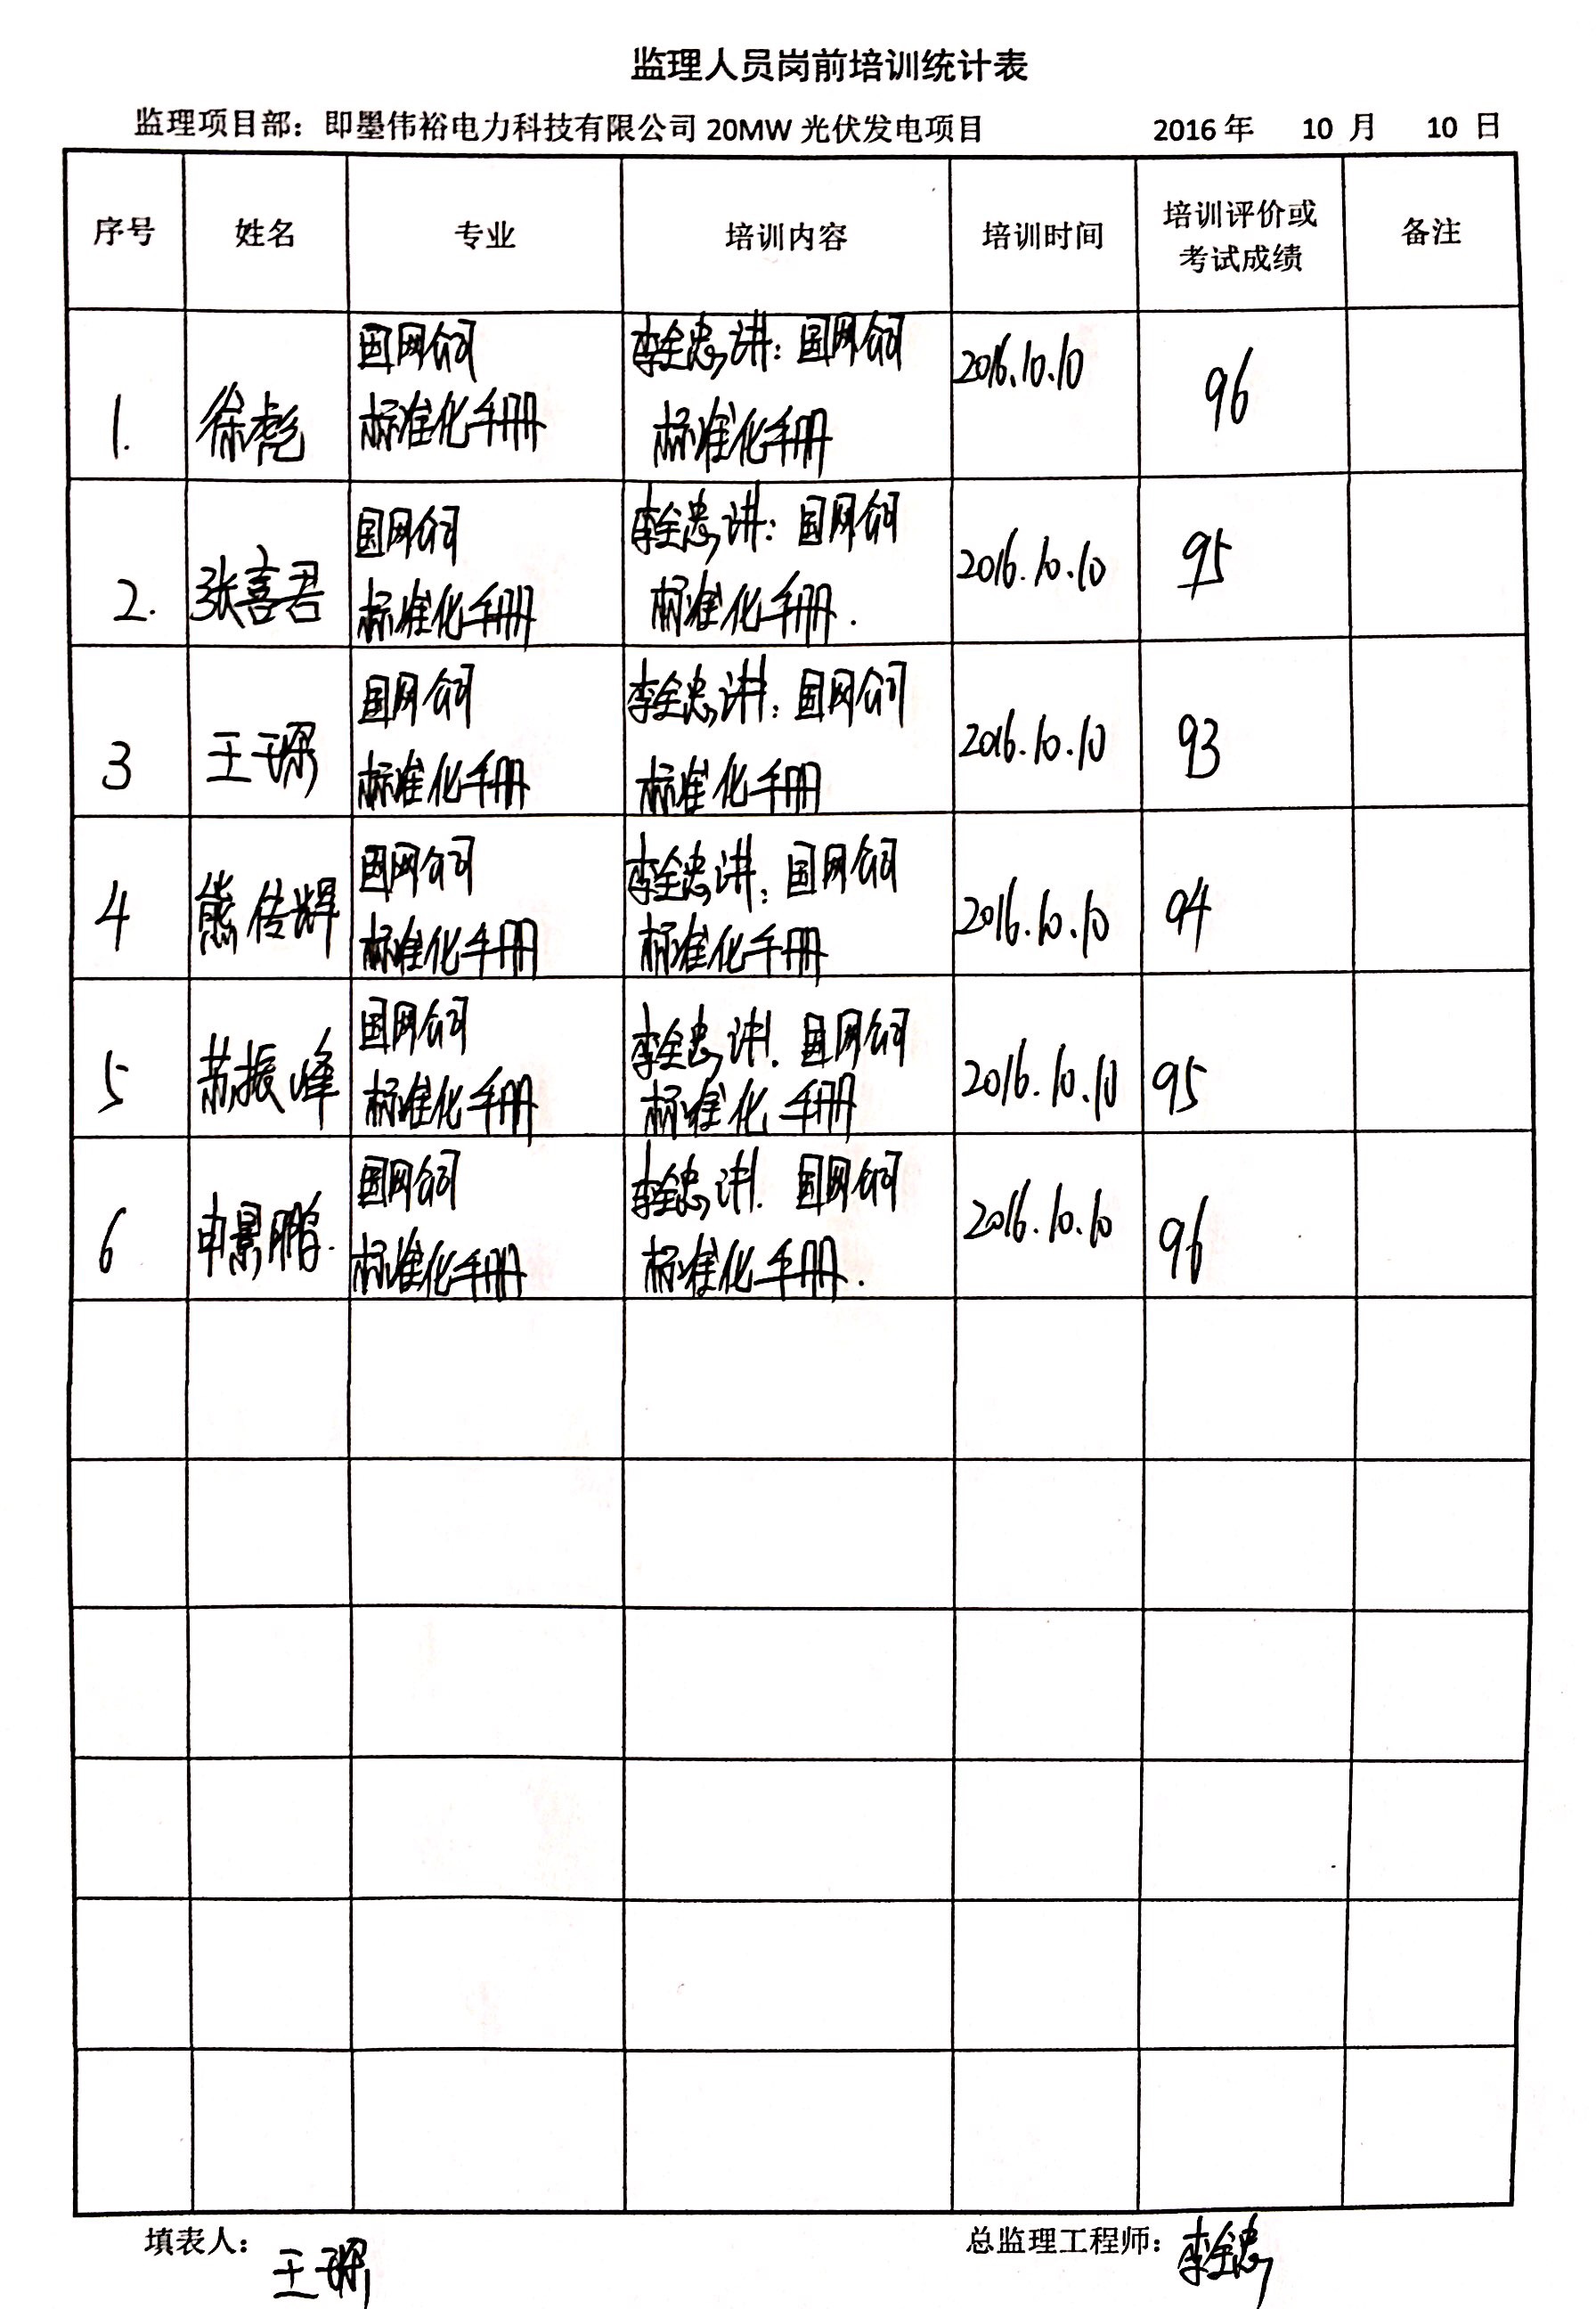 监理人员岗前培训统计表
监理项目部：即墨伟裕电力科技有限公司 20MW 光伏发电项目 2016 年 10 月 10 日
序号 姓名 专业 培训内容 培训时间 培训评价或 备注
考试成绩
国网公司 李全忠讲：国网公司 2016.10.10
1. 徐彪 标准化手册 标准化手册 96
国网公司 李全忠讲：国网公司 2016.10.10 95
2. 张喜君 标准化手册 标准化手册.
国网公司 李全忠讲：国网公司 2016.10.10 93
3 王子琛 标准化手册 标准化手册
国网公司 李全忠讲：国网公司 2016.10.10 94
4 熊传辉 标准化手册 标准化手册
国网公司 李全忠讲. 国网公司 2016.10.10 95
5 苏振峰 标准化手册 标准化手册
国网公司 李全忠讲. 国网公司 2016.10.10 96
6 申景鹏. 标准化手册 标准化手册.
填表人： 王子琛 总监理工程师：李全忠